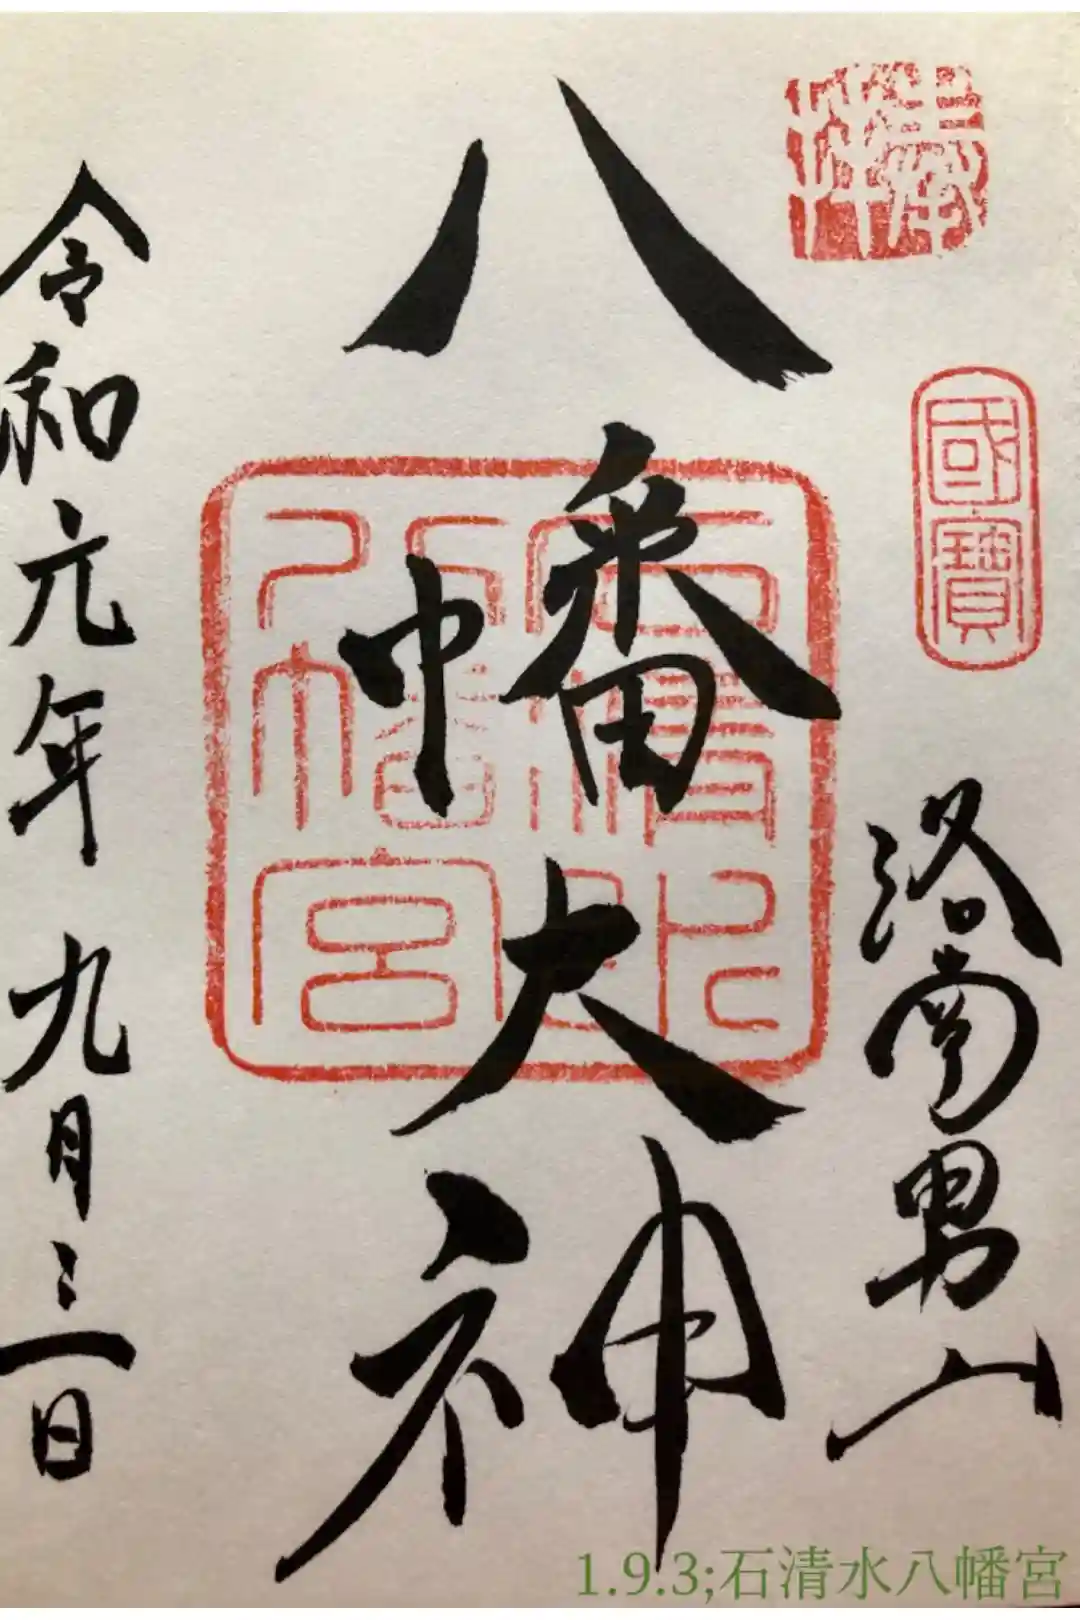 奉拝
國寶
洛南男山
八幡大神
石清水
八幡宮
令和元年九月三日
1.9.3;石清水八幡宮